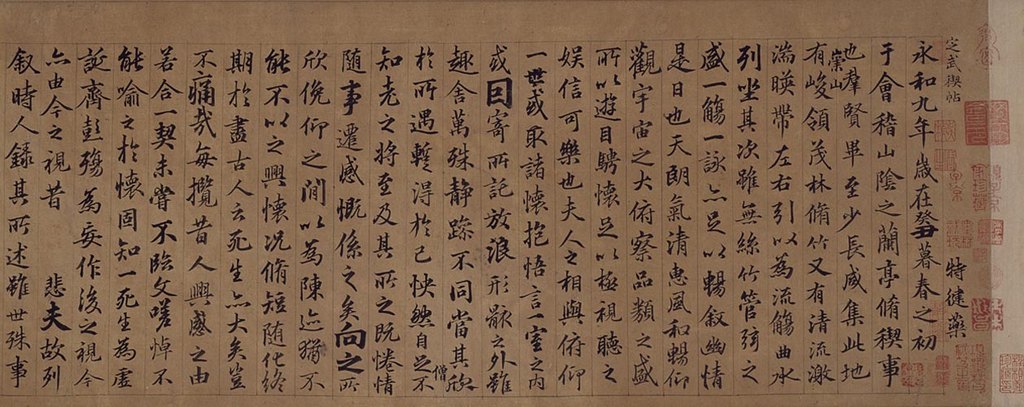 定武禊帖
特健藥
永和九年歲在癸丑暮春之初
于會稽山陰之蘭亭脩稧事
也羣賢畢至少長咸集此地
崇山
有峻領茂林脩竹又有清流激
湍暎帶左右引以為流觴曲水
列坐其次雖無絲竹管弦之
盛一觴一詠亦足以暢敘幽情
是日也天朗氣清惠風和暢仰
觀宇宙之大俯察品類之盛
所以遊目騁懷足以極視聽之
娛信可樂也夫人之相與俯仰
一世或取諸懷抱悟言一室之內
或因寄所託放浪形骸之外雖
趣舍萬殊靜躁不同當其欣
僧
於所遇蹔得於己怏然自足不
知老之將至及其所之既惓情
隨事遷感慨係之矣向之所
欣俛仰之閒以為陳迹猶不
能不以之興懷況脩短隨化終
期於盡古人云死生亦大矣豈
不痛哉每攬昔人興感之由
若合一契未嘗不臨文嗟悼不
能喻之於懷固知一死生為虛
誕齊彭殤為妄作後之視今
亦由今之視昔 悲夫故列
敘時人錄其所述雖世殊事